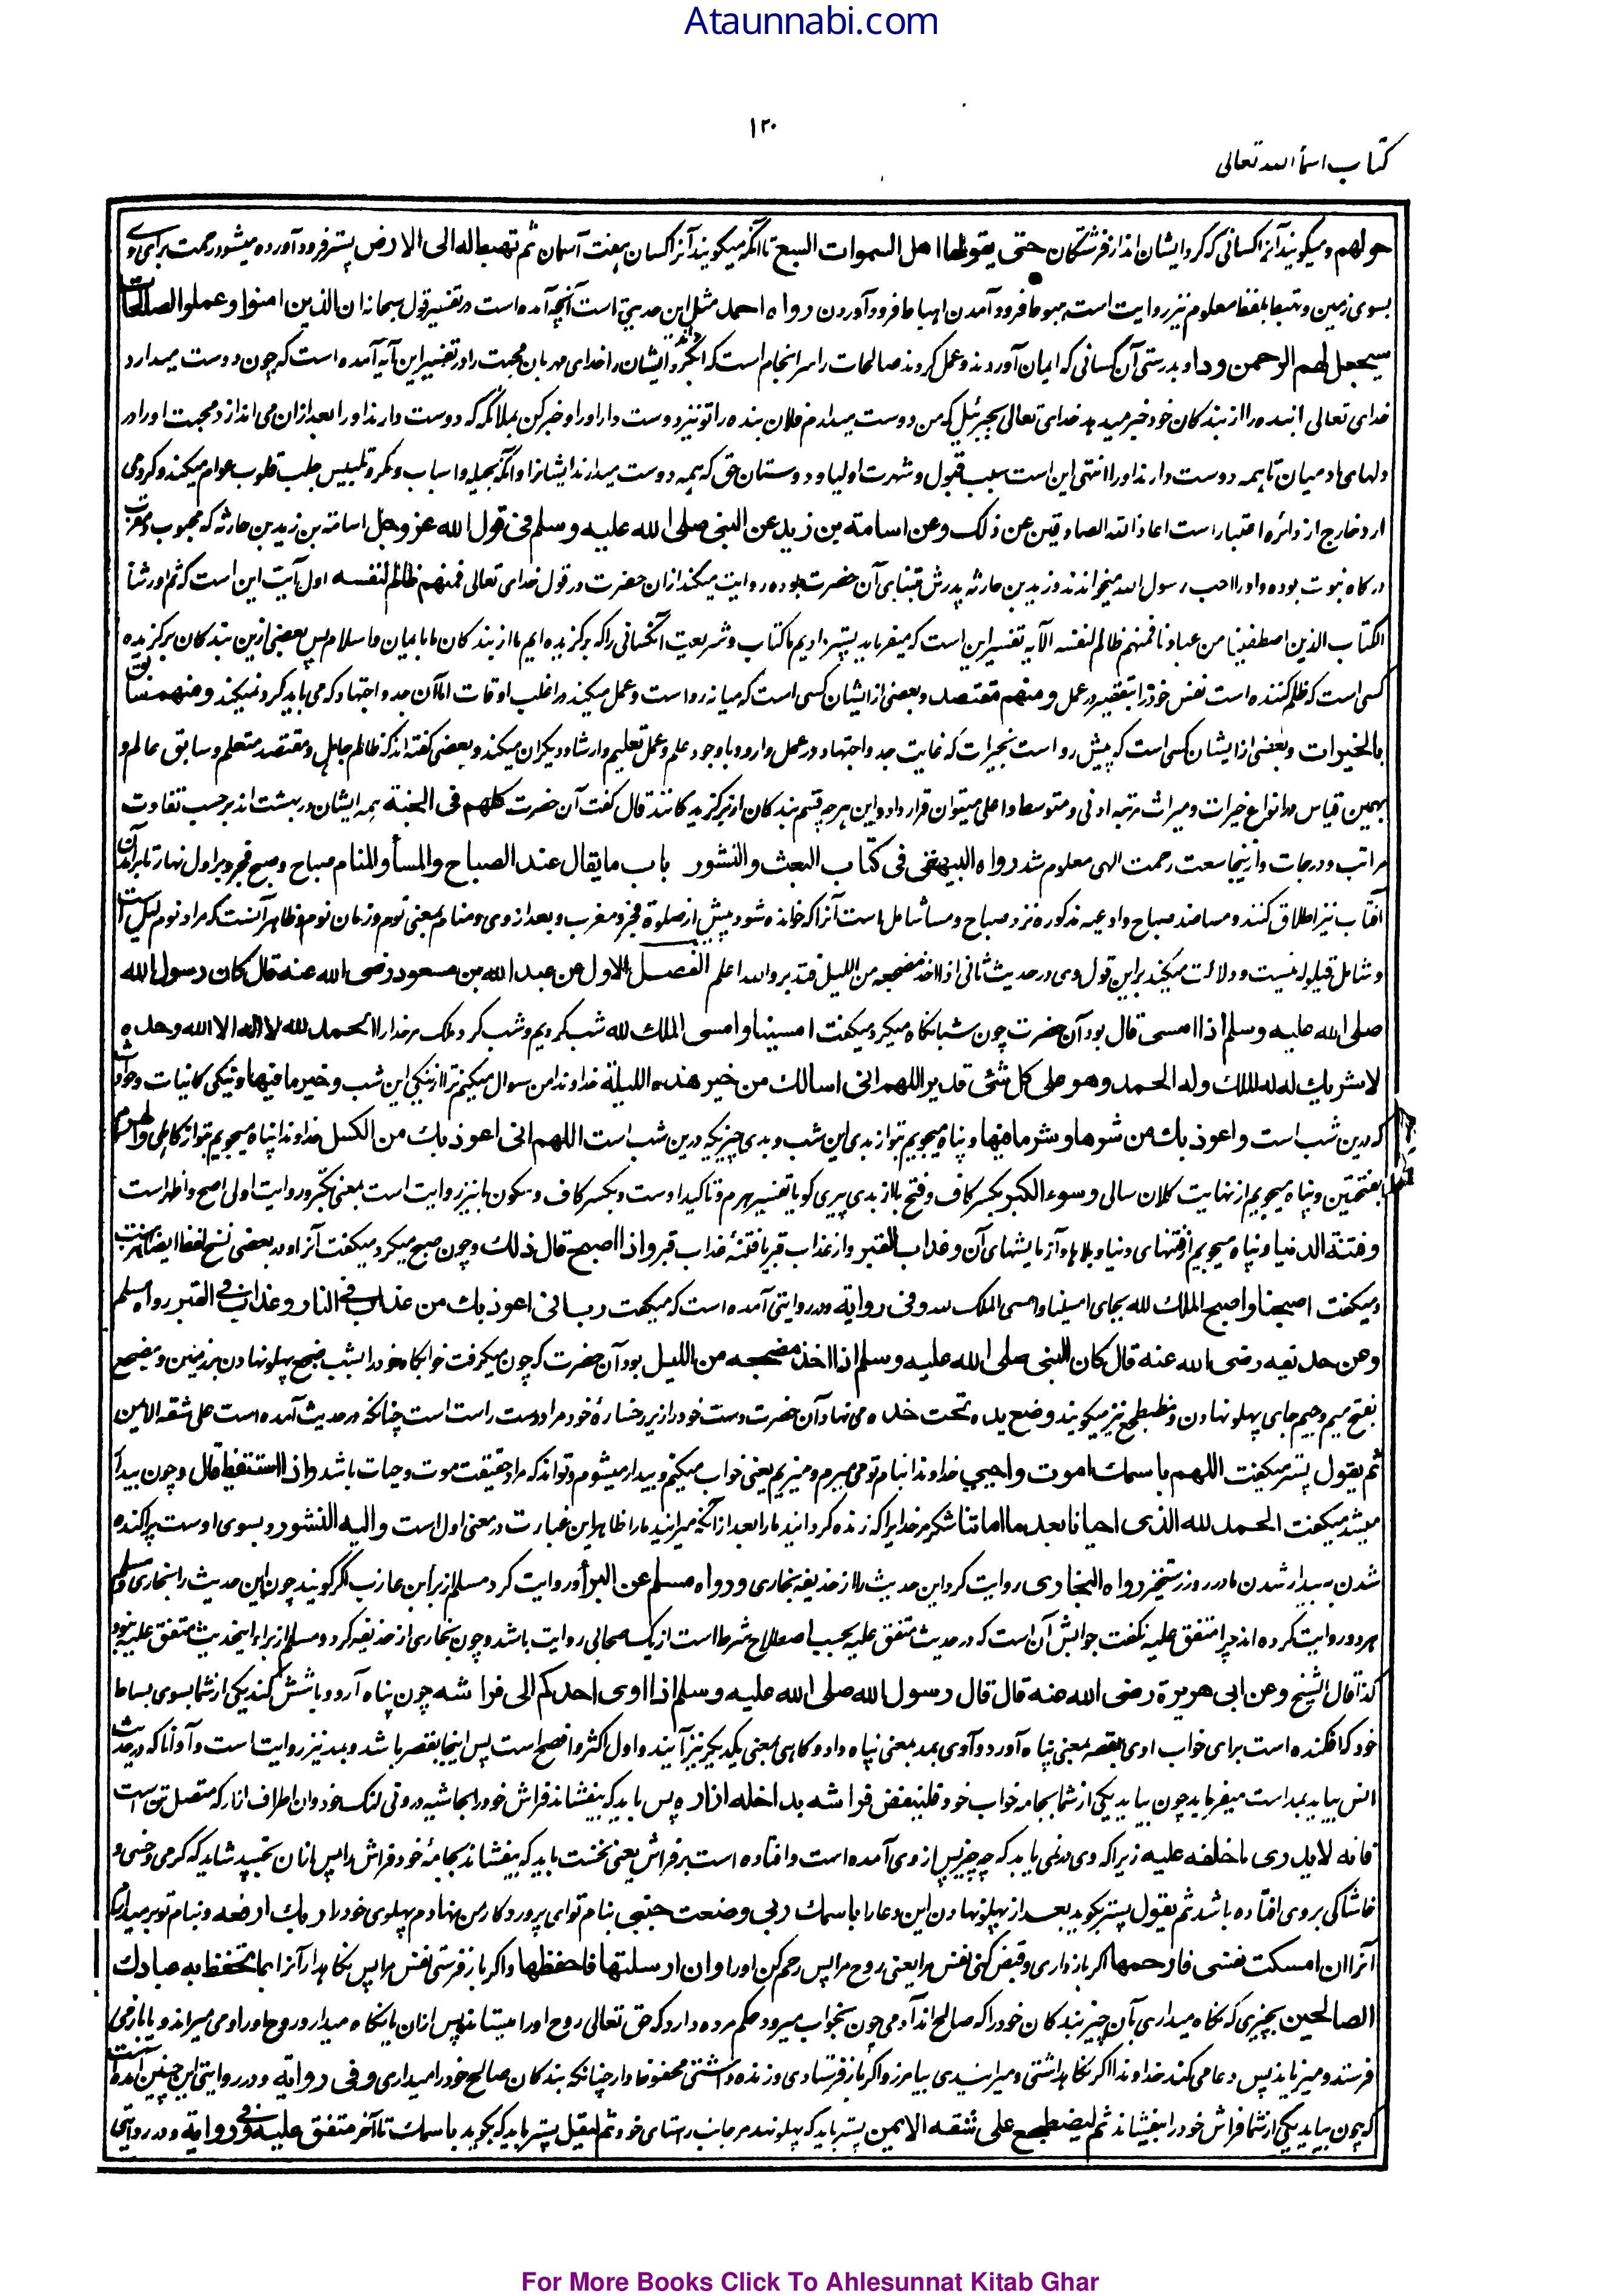 Ataunnabi.com
۱۲۰
کتاب اسماء الله تعالی
حولهم و میگویند آنرا کسانی که گرد ایشان اند از فرشتگان حتی یقولها اهل السموات السبع تا آنکه میگویند آنرا کسان هفت آسمان ثم تهبط له الی الارض پستر فرود آورده میشود رحمت برای وے
بسوی زمین و تهبط بلفظ معلوم نیز روایت است هبوط فرود آمدن اهباط فرود آوردن رواه احمد مثل این حدیثی است آنچه آمده است در تفسیر قول سبحانه ان الذین امنوا وعملوا الصالحات
سیجعل لهم الرحمن ودا و بدرستی آن کسانی که ایمان آوردند و عمل کردند صالحات را سرانجام است که ایشان را خدای مهربان محبت را و در تفسیر این آیه آمده است که چون دوست میدارد
خدای تعالی بنده را از بندگان خود خبر میدهد خدای تعالی بجبرئیل که من دوست میدارم فلان بنده را تو نیز دوست دار او را و خبر کن بملائکه که دوست دارند او را بعد ازان می اندازد محبت او را در
دلهای آدمیان تا همه دوست دارند او را انتهی این است سبب قبول و شهرت اولیا و دوستان حق که همه دوست میدارند ایشانرا و آنکه بحیله و اسباب و مکر و تلبیس جلب قلوب عوام میکنند و گرد می
آرد خارج از دائره اعتبار است اعاذ الله الصادقین عن ذلک وعن اسامة بن زید عن النبی صلی الله علیه وسلم فی قول الله عز وجل اسامة بن زید بن حارثه که محبوب و مقرب
درگاه نبوت بوده و او را حب رسول الله میخوانند و زید بن حارثه پدرش متبنای آن حضرت بوده روایت میکند ازان حضرت در قول خدای تعالی فمنهم ظالم لنفسه اول آیت این است که ثم اورثنا
الکتاب الذین اصطفینا من عبادنا فمنهم ظالم لنفسه الآیه تفسیر این است که میفرماید پستر دادیم ما کتاب و شریعت آنکسانی را که برگزیده ایم ما از بندگان ما بایمان و اسلام پس بعضی ازین بندگان برگزیده
کسی است که ظلم کننده است نفس خود را بتقصیر در عمل ومنهم مقتصد و بعضی از ایشان کسی است که میانه رو است و عمل میکند در اغلب اوقات اما آن جد و اجتهاد که می باید کرد نمیکند ومنهم سابق
بالخیرات و بعضی از ایشان کسی است که پیش رو است بخیرات که غایت جد و اجتهاد در عمل دارد و باوجود علم و عمل تعلیم و ارشاد دیگران میکند و بعضی گفته اند که ظالم جاهل و مقتصد متعلم و سابق عالم و
بهمین قیاس در انواع خیرات و میراث مرتبه ادنی و متوسط و اعلی میتوان قرار داد و این هر سه قسم بندگان از برگزیدگانند قال گفت آن حضرت کلهم فی الجنة همه ایشان در بهشت اند بر حسب تفاوت
مراتب و درجات و ازینجا سعت رحمت الهی معلوم شد رواه البیهقی فی کتاب البعث والنشور باب ما یقال عند الصباح والمساء والمنام صباح و صبح فجر و بر اول نهار تا برآمدن
آفتاب نیز اطلاق کنند و مسا ضد صباح و ادعیه مذکوره نزد صباح و مسا شامل است آنرا که خوانده شود پیش از صلوة فجر و مغرب و بعد از وی و منام بمعنی نوم و زمان نوم و ظاهر آنست که مراد نوم لیل است
و شامل قیلوله نیست و دلالت میکند براین قول وی در حدیث ثانی اذا اخذ مضجعه من اللیل فتدبر والله اعلم الفصل الاول عن عبد الله بن مسعود رضی الله عنه قال کان رسول الله
صلی الله علیه وسلم اذا امسی قال بود آن حضرت چون شبانگاه میکرد میگفت امسینا وامسی الملک لله شب کردیم و شب کرد ملک مر خدا را الحمد لله لا اله الا الله وحده
لا شریک له له الملک وله الحمد وهو علی کل شئ قدیر اللهم انی اسالک من خیر هذه اللیلة خداوندا من سوال میکنم ترا از نیکی این شب وخیر ما فیها و نیکی کائنات و حوادث
که درین شب است واعوذ بک من شرها وشر ما فیها و پناه میجویم بتو از بدی این شب و بدی چیزیکه درین شب است اللهم انی اعوذ بک من الکسل خداوندا پناه میجویم بتو از کاهلی والهرم
بفتحتین و پناه میجویم از نهایت کلان سالی وسوء الکبر بکسر کاف و فتح با از بدی پیری گویا تفسیر هرم و تاکید اوست و بکسر کاف و سکون با نیز روایت است بمعنی تکبر و روایت اولی اصح و اظهر است
وفتنة الدنیا و پناه میجویم از فتنهای دنیا و بلاها و آزمایشهای آن وعذاب القبر و از عذاب قبر یا فتنهٔ عذاب قبر واذا اصبح قال ذلک و چون صبح میکرد میگفت آنرا و در بعضی نسخ لفظ ایضا هست
و میگفت اصبحنا واصبح الملک لله بجای امسینا وامسی الملک لله وفی روایة و در روایتی آمده است که میگفت رب انی اعوذ بک من عذاب فی النار وعذاب فی القبر رواه مسلم
وعن حذیفه رضی الله عنه قال کان النبی صلی الله علیه وسلم اذا اخذ مضجعه من اللیل بود آن حضرت که چون میگرفت خوابگاه خود را بشب ضجع پهلو نهادن بر زمین و مضجع
بفتح میم و جیم جای پهلو نهادن و مضطجع نیز میگویند وضع یده تحت خده می نهاد آن حضرت دست خود را زیر رخسارهٔ خود مراد دست راست است چنانکه در حدیث آمده است علی شقه الایمن
ثم یقول پستر میگفت اللهم باسمک اموت واحیی خداوندا بنام تو می میرم و میزیم یعنی خواب میکنم و بیدار میشوم و تواند که مراد حقیقت موت و حیات باشد واذا استیقظ قال و چون بیدار
میشد میگفت الحمد لله الذی احیانا بعد ما اماتنا شکر مر خدایرا که زنده گردانید ما را بعد از آنکه میرانید ما را ظاهر این عبارت در معنی اول است والیه النشور و بسوی اوست پراگنده
شدن به بیدار شدن ما در روز رستخیز رواه البخاری روایت کرد این حدیث را از حذیفه بخاری ورواه مسلم عن البراء و روایت کرد مسلم از براء بن عازب اگر گویند چون این حدیث را بخاری و مسلم
هر دو روایت کرده اند چرا متفق علیه نگفت جوابش آن است که در حدیث متفق علیه بحسب اصطلاح شرط است از یک صحابی روایت باشد و چون بخاری از حذیفه کرد و مسلم از براء این حدیث متفق علیه نبود
کذا قال الشیخ وعن ابی هریرة رضی الله عنه قال قال رسول الله صلی الله علیه وسلم اذا اوی احدکم الی فراشه چون پناه آرد و باشش کند یکی از شما بسوی بساط
خود که افگنده است برای خواب اوی بقصر بمعنی پناه آورد و آوی بمد بمعنی پناه داد و گاهی بمعنی یکدیگر نیز آیند و اول اکثر و افصح است پس اینجا بقصر باشد و بمد نیز روایت است و آوانا که در حدیث
انس بیاید بمد است میفرماید چون بیاید یکی از شما بجامه خواب خود فلینفض فراشه بداخله ازاره پس باید که بیفشاند فراش خود را بحاشیه درونی لنگ خود و ان اطراف ازار که متصل تن است
فانه لا یدری ما خلفه علیه زیرا که وی در نمی یابد که چه چیز پس از وی آمده است و افتاده است بر فراش یعنی نخست باید که بیفشاند بجامهٔ خود فراش را پس ازان بخسپد شاید که کرمی و خسی و
خاشاکی بر وی افتاده باشد ثم یقول پستر بگوید بعد از پهلو نهادن این دعا را باسمک ربی وضعت جنبی بنام تو ای پروردگار من نهادم پهلوی خود را وبک ارفعه و بنام تو بر میدارم
آنرا ان امسکت نفسی فارحمها اگر باز داری و قبض کنی نفس مرا یعنی روح مرا پس رحم کن او را وان ارسلتها فاحفظها و اگر باز فرستی نفس مرا پس نگاهدار آنرا بما تحفظ به عبادک
الصالحین بچیزی که نگاه میداری بآن چیز بندگان خود را که صالح اند آدمی چون بخواب میرود حکم مرده دارد که حق تعالی روح او را میستاند پس ازان یا نگاه میدارد روح او را و می میراند و یا باز می
فرستد و میزیاند پس دعا می کند خداوندا اگر نگاهداشتی و میرانیدی بیامرز و اگر باز فرستادی و زنده داشتی محفوظ دار چنانکه بندگان صالح خود را میداری وفی روایة و در روایتی این چنین آمده است
که چون بیاید یکی از شما فراش خود را بیفشاند ثم لیضطجع علی شقه الایمن پستر باید که پهلو نهد بر جانب راستای خود ثم لیقل پستر باید که بگوید باسمک تا آخر متفق علیه وفی روایة و در روایتی
For More Books Click To Ahlesunnat Kitab Ghar